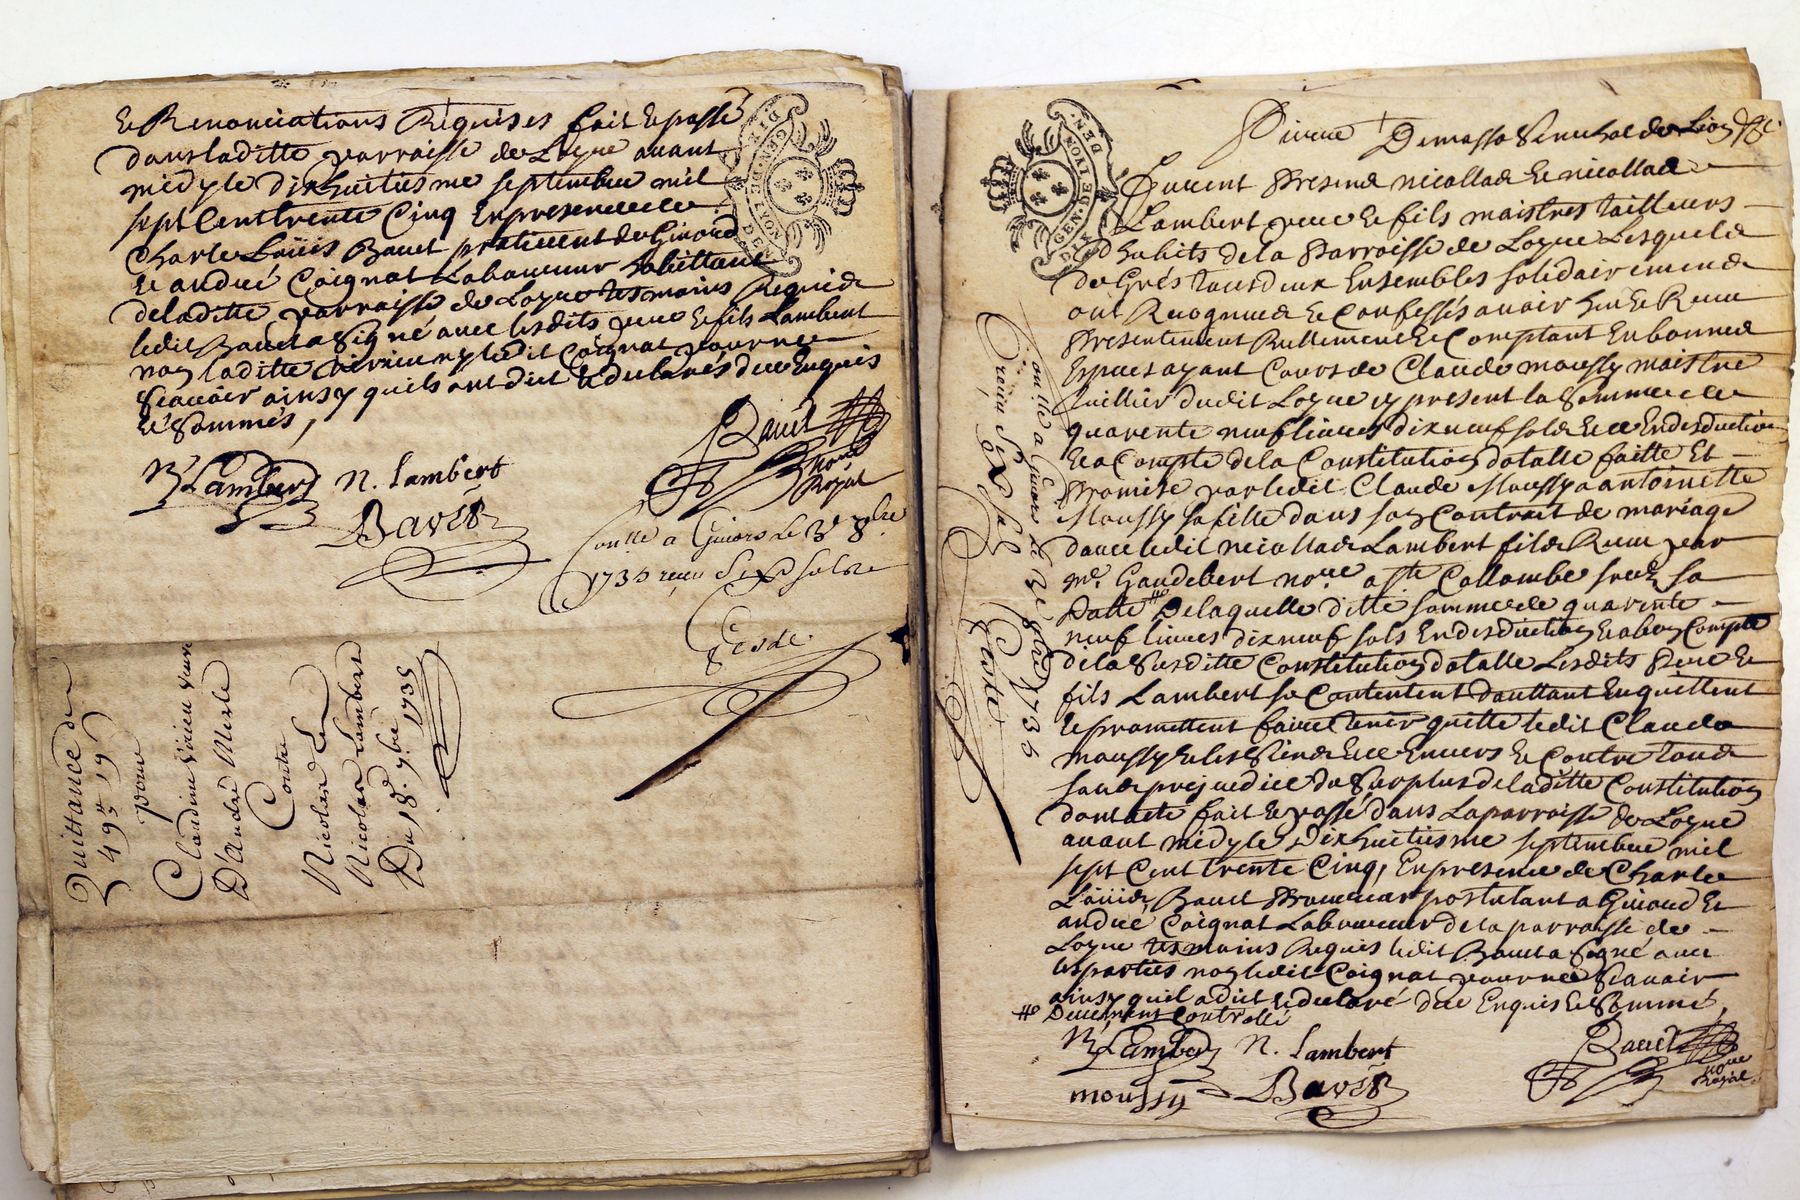 & Renonciations Requises fait & passé
dans laditte parroisse de Loyre avant
midy le dixhuitiesme septembre mil
sept Cent trente Cinq En presence de
Charle Loüis Bavet praticient de Givord
& andré Coignat Laboureur habittant
de laditte parroisse de Loyre tesmoins Requis
ledit Bavet a signé avec lesdits pere & fils Lambert
non laditte ny ledit Coignat pour ne
scavoir ainsy quils ont dit & declarés de ce Enquis
& sommés,
N. Lambert
Bavet
Royal
BaveT
Con.lle a Givors Le 3e 8bre
1735 reçu six sols
Gesde
DE LYON
GEN. DE LYON
Quittance de
49# 19s
pour
Claudine Virieu veuve
D'andré Merle
Contre
Nicolas &
Nicolas Lambert
Du 18e 7bre 1735
Furent Presend nicollad & nicollad
Lambert pere & fils maistres tailleurs
d'habits de la Parroisse de Loyre Lesqueld
de Grés tous deux Ensembles solidairement
ont Recognud & Confessés avoir heu & Receu
Presentement Rellement & Comptant En bonned
Espaces ayant Cours de Claude moussy maistre
tuillier dudit Loyre cy present la Somme de
quarente neuf livres dix neuf sold & ce En desduction
& a Compte de la Constitution dotalle faitte Et
Promise par ledit Claude Moussy a antoinette
Moussy sa fille dans son Contrait de mariage
d'avec ledit nicollad Lambert fild Receu par
me. Gaudebert no.re a ste Collombe sous sa
Datte # De laquelle ditte somme de quarente
neuf livres dix neuf sols En desduction & a bon Compte
de la Susditte Constitution dotalle Lesdits Pere &
fils Lambert se Contentent d'auttant En quittent
& promettent faire tenir quitte ledit Claude
moussy & les siend & ce Envers & Contre toud
sand prejudice du Surplus de laditte Constitution
dont acte fait & passé dans La parroisse de Loyre
avant midy le Dixhuitiesme septembre mil
sept Cent trente Cinq, En presence de Charle
Loüid Bavet Procureur postulant a Givord Et
andré Coignat Laboureur de la parroisse de
Loyre tesmoins Requis ledit Bavet a signé avec
les parties non ledit Coignat pour ne scavoir
ainsy quil a dit & declaré de ce Enquis & Sommé,
# Deuement Controllé
N. Lambert
Bavet
moussy
BaveT
Royal
Con.lle a Givors Le 3e 8bre 1735
reçu six sols
Gesde
GEN. DE LYON